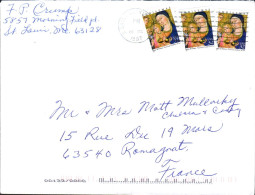 F P Crump
5857 Morning Field pl.
St. Louis, Mo. 63128
Mr & Mrs Matt Mullarky
15 Rue Du 19 Mars
63540 Romagnat
France